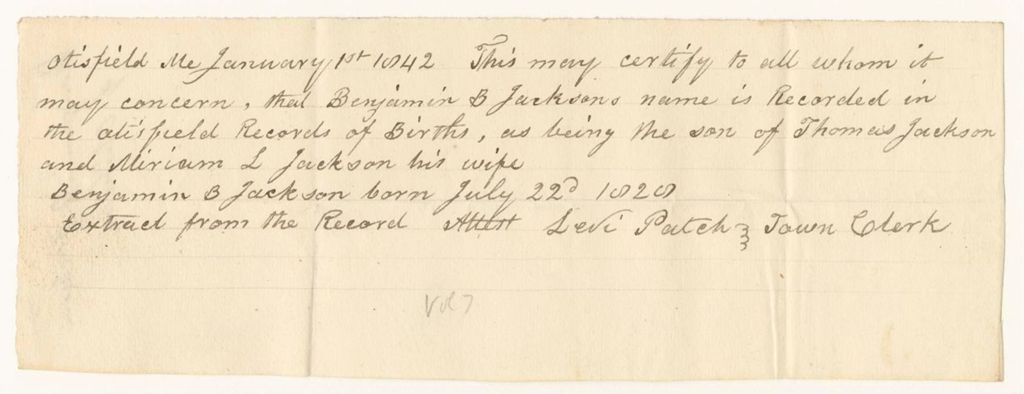 Otisfield Me January 1st 1842 This may certify to all whom it
may concern, that Benjamin B Jacksons name is Recorded in
the Otisfield Records of Births, as being the son of Thomas Jackson
and Miriam L Jackson his wife
Benjamin B Jackson born July 22d 1828
Extract from the Record Attest Levi Patch Town Clerk
Vol 7